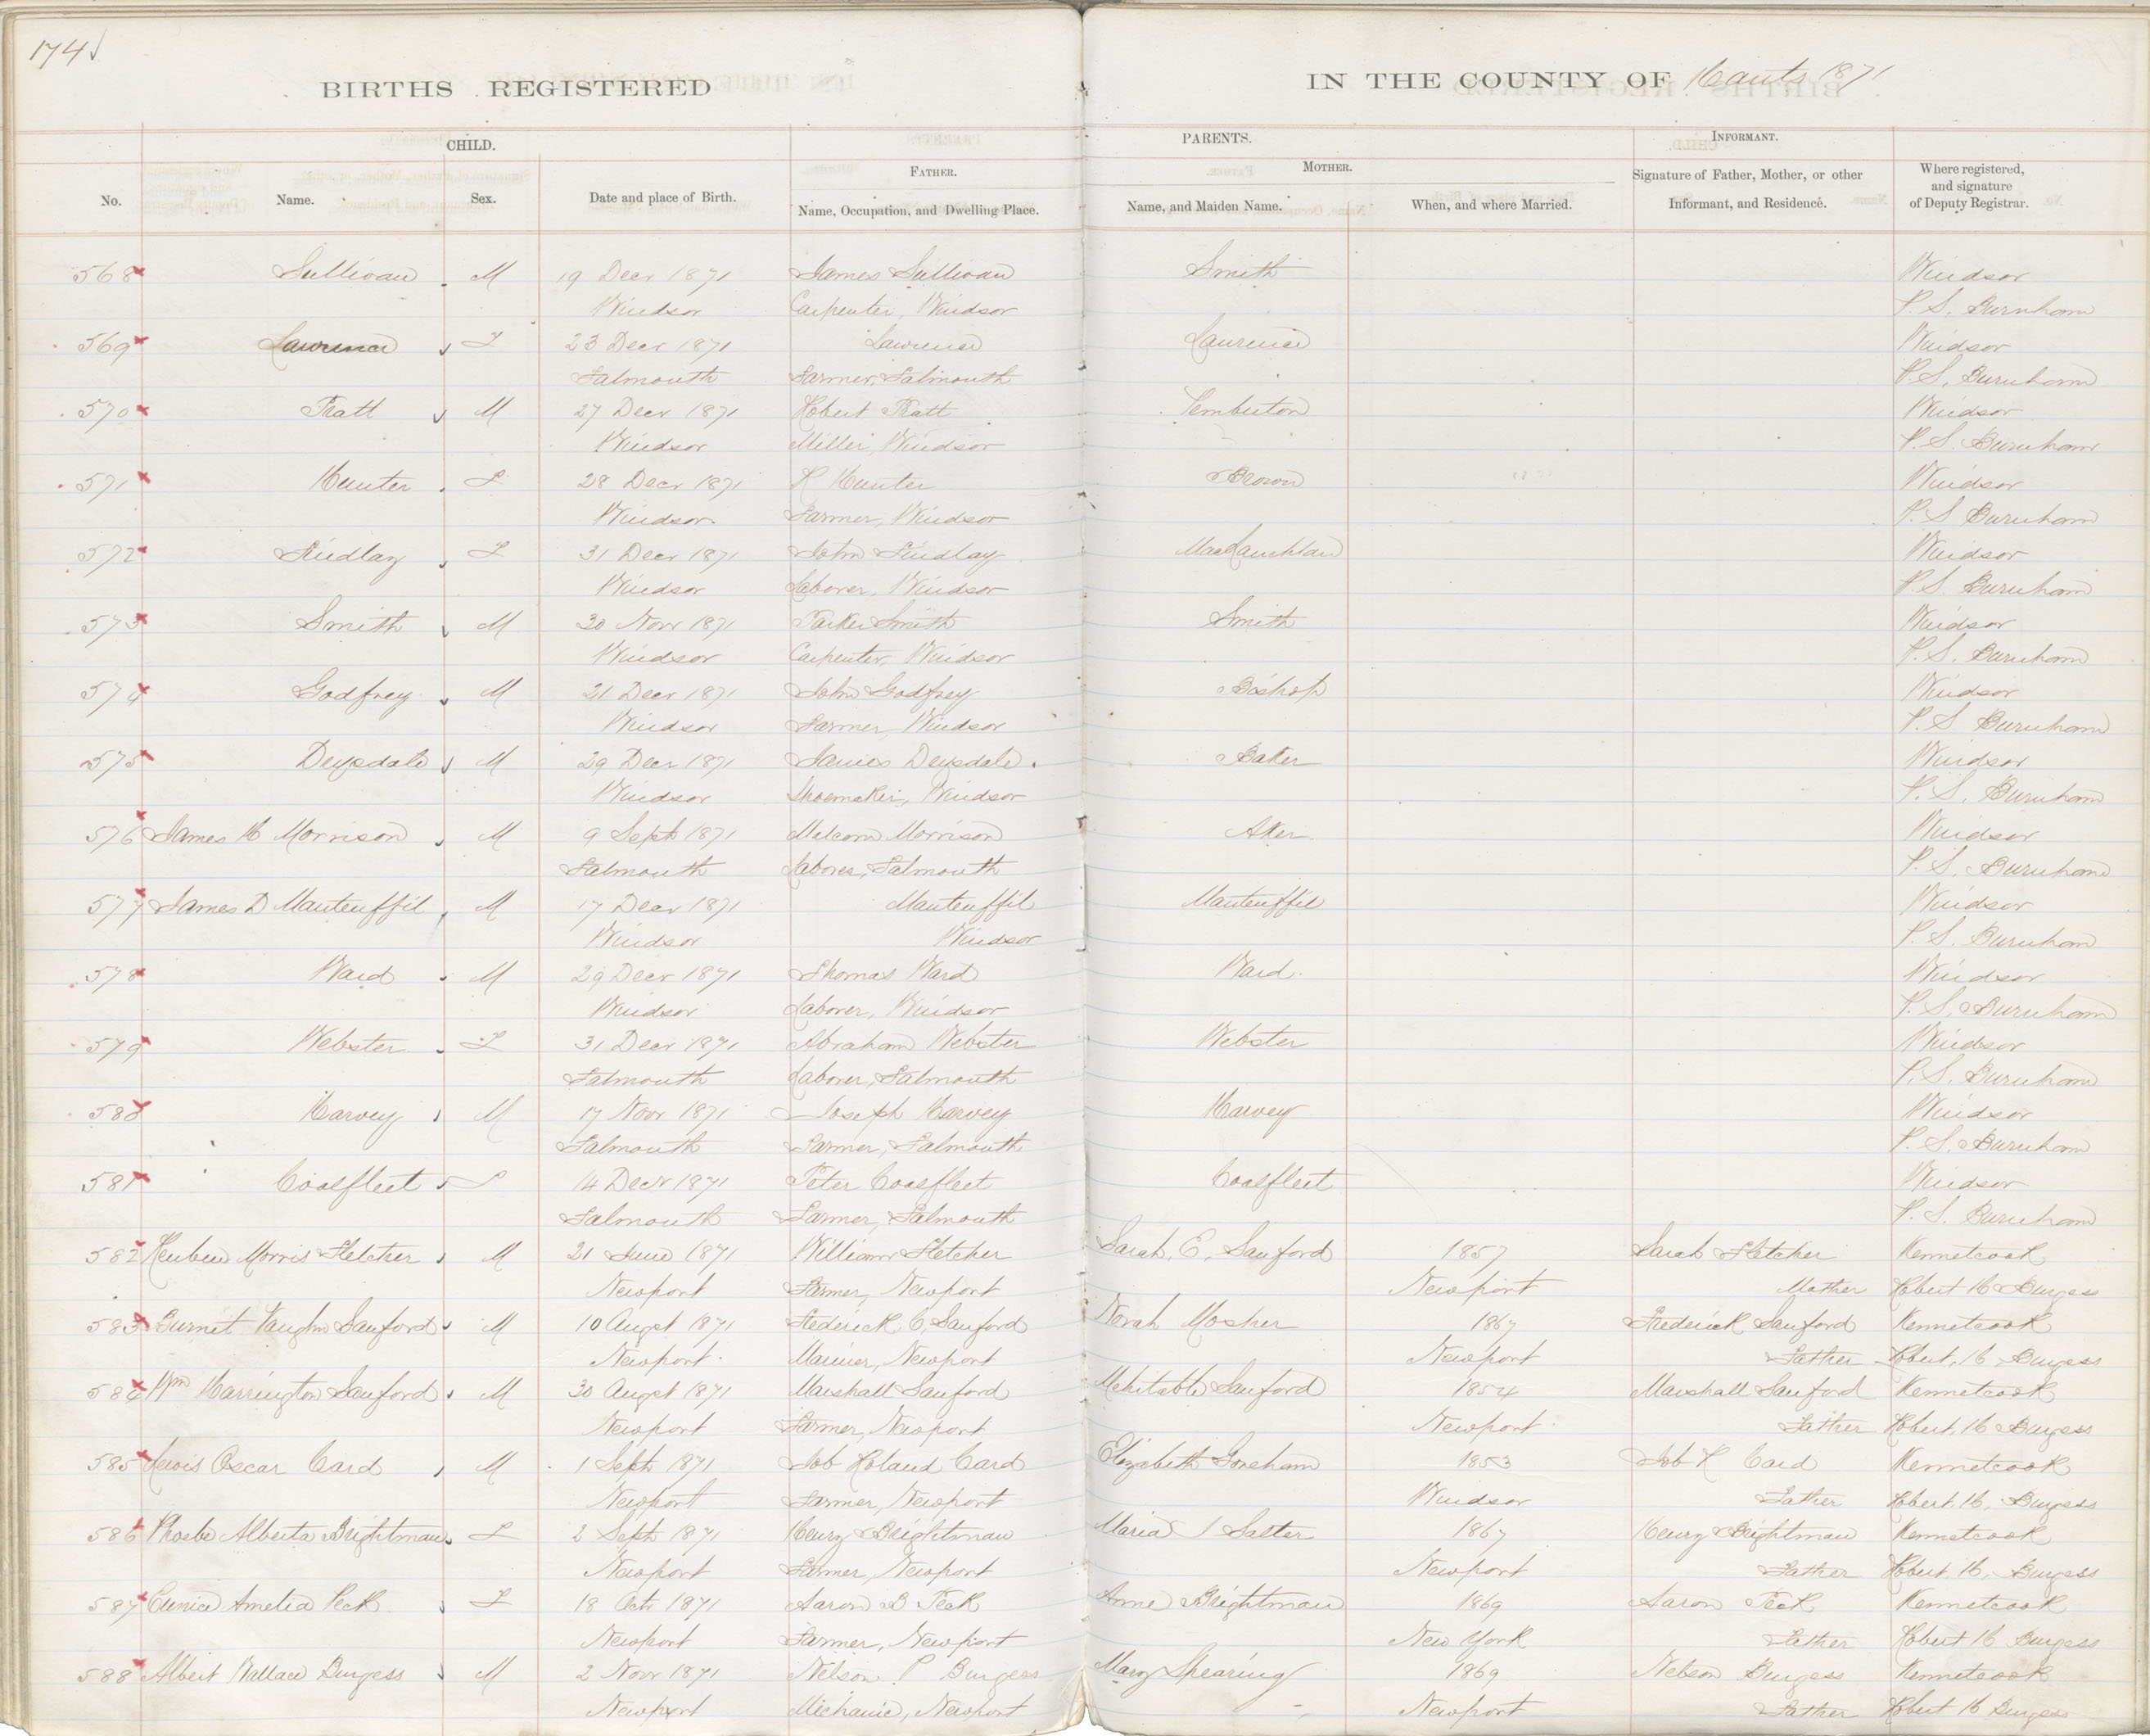 174
BIRTHS REGISTERED IN THE COUNTY OF Hants 1871
CHILD. PARENTS. INFORMANT.
FATHER. MOTHER.
No. Name. Sex. Date and place of Birth. Name, Occupation, and Dwelling Place. Name, and Maiden Name. When, and where Married. Signature of Father, Mother, or other Informant, and Residence. Where registered, and signature of Deputy Registrar.
568 Sullivan M 19 Decr 1871 James Sullivan Smith Windsor
Windsor Carpenter, Windsor P. S. Burnham
569 Lawrence F 23 Decr 1871 Lawrence Laurence Windsor
Falmouth Farmer, Falmouth P. S. Burnham
570 Pratt M 27 Decr 1871 Robert Pratt Pemberton Windsor
Windsor Miller, Windsor P. S. Burnham
571 Hunter F 28 Decr 1871 R Hunter Brown Windsor
Windsor Farmer, Windsor P. S Burnham
572 Findlay F 31 Decr 1871 John Findlay MacLauchlan Windsor
Windsor Laborer, Windsor P. S. Burnham
573 Smith M 30 Novr 1871 Parker Smith Smith Windsor
Windsor Carpenter, Windsor P. S. Burnham
574 Godfrey M 21 Decr 1871 John Godfrey Bishop Windsor
Windsor Farmer, Windsor P. S Burnham
575 Drysdale M 29 Decr 1871 James Drysdale Baker Windsor
Windsor Shoemaker, Windsor P. S. Burnham
576 James H Morrison M 9 Sept 1871 Malcom Morrison Aker Windsor
Falmouth Laborer, Falmouth P. S. Burnham
577 James D Manteuffil M 17 Decr 1871 Manteuffil Manteuffil Windsor
Windsor Windsor P. S. Burnham
578 Ward M 29 Decr 1871 Thomas Ward Ward Windsor
Windsor Laborer, Windsor P. S. Burnham
579 Webster F 31 Decr 1871 Abraham Webster Webster Windsor
Falmouth Laborer, Falmouth P. S. Burnham
580 Harvey M 17 Novr 1871 Joseph Harvey Harvey Windsor
Falmouth Farmer, Falmouth P. S. Burnham
581 Coalfleet F 14 Decr 1871 Peter Coalfleet Coalfleet Windsor
Falmouth Farmer, Falmouth P. S. Burnham
582 Reuben Morris Fletcher M 21 June 1871 William Fletcher Sarah. E. Sanford 1857 Sarah Fletcher Kennetcook
Newport Farmer, Newport Newport Mother Robert H Burgess
583 Burnet Vaughn Sanford M 10 Augst 1871 Frederick C. Sanford Norah Mosher 1867 Frederick Sanford Kennetcook
Newport Mariner, Newport Newport Father Robert, H Burgess
584 Wm Harrington Sanford M 30 Augst 1871 Marshall Sanford Mehitable Sanford 1854 Marshall Sanford Kennetcook
Newport Farmer, Newport Newport Father Robert, H Burgess
585 Lewis Oscar Card M 1 Sept 1871 Job Roland Card Elizabeth Goreham 1853 Job R Card Kennetcook
Newport Farmer, Newport Windsor Father Robert. H. Burgess
586 Phoebe Alberta Brightman F 2 Sept 1871 Henry Brightman Maria J Salter 1867 Henry Brightman Kennetcook
Newport Farmer, Newport Newport Father Robert. H. Burgess
587 Eunice Amelia Peck F 18 Oct 1871 Aaron B Peck Anne Brightman 1869 Aaron Peck Kennetcook
Newport Farmer, Newport New York Father Robert H Burgess
588 Albert Wallace Burgess M 2 Novr 1871 Nelson P Burgess Mary Shearing 1869 Nelson Burgess Kennetcook
Newport Mechanic, Newport Newport Father Robert H Burgess